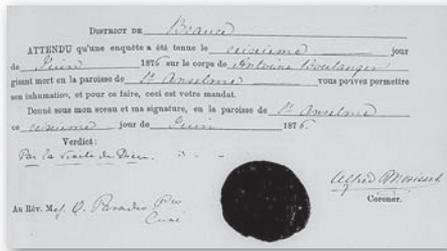 DISTRICT DE Beauce
ATTENDU qu'une enquête a été tenue le seizieme jour
de Juin 1876 sur le corps de Antoine Boulanger
gisant mort en la paroisse de St Anselme vous pouvez permettre
son inhumation, et pour ce faire, ceci est votre mandat.
Donné sous mon sceau et ma signature, en la paroisse de St Anselme
ce seizieme jour de Juin 1876.
Verdict:
Par la Visite de Dieu.
Alfred Morisset
Coroner.
Au Rév. O. Paradis Ptre
Curé